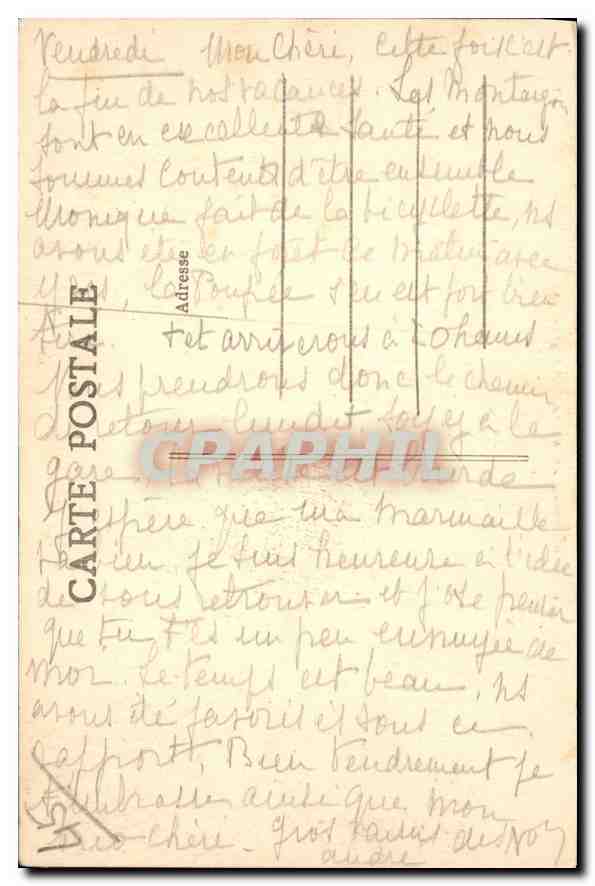 Vendredi Mon Chéri, cette fois c'est
la fin de nos vacances. Les Montargis
sont en excellente santé et nous
sommes contents d'être ensemble
Monique fait de la bicyclette, ns
avons été en forêt ce matin avec
la Poupée s'en est fort bien
+ et arriverons à 20 heures
prendrons donc le chemin
de retour lundi + sois y à la
gare.
J'espère que ma marmaille
va bien je suis heureuse à l'idée
de vous retrouver et j'ose penser
que tu t'es un peu ennuyé de
moi. Le temps est beau, ns
avons été favorisés sous ce
rapport. Bien tendrement je
t'embrasse ainsi que mon
chéri. Gros baisers des
CARTE POSTALE
Adresse
CPAPHIL
45